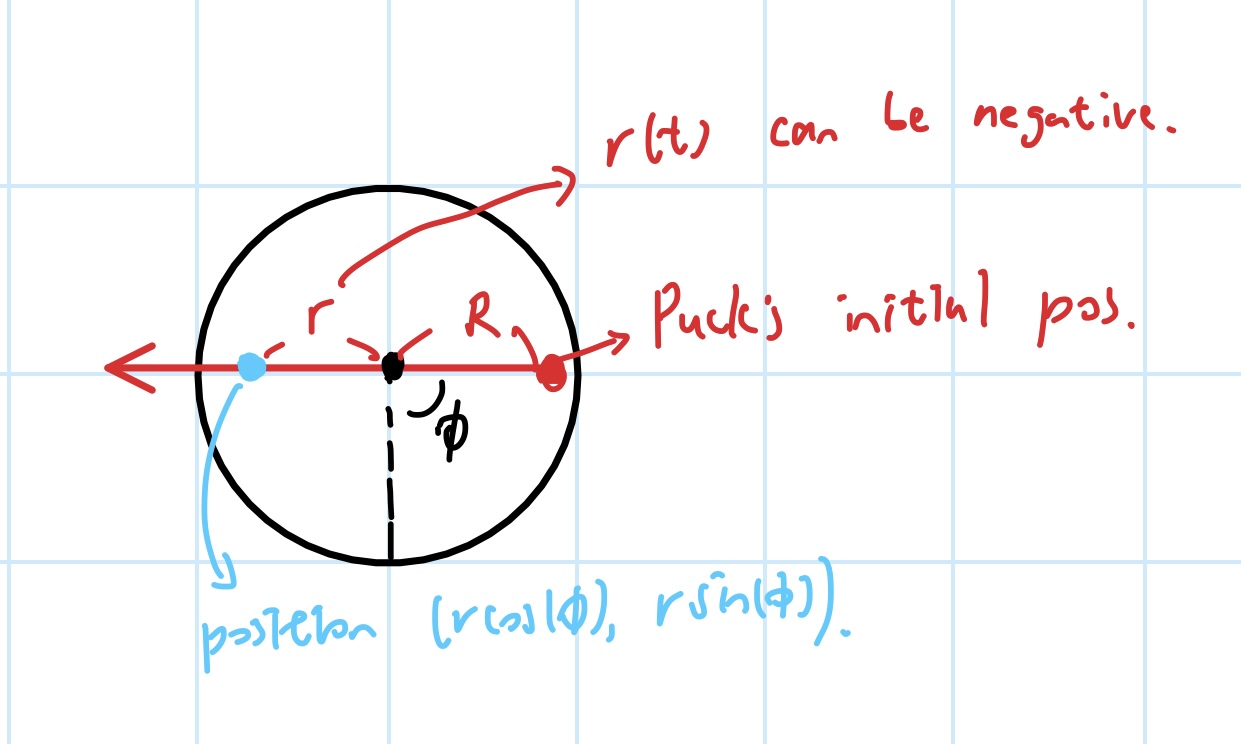 r(t) can be negative.
r
R
Puck's initial pos.
ϕ
position (rcos(ϕ), rsin(ϕ)).